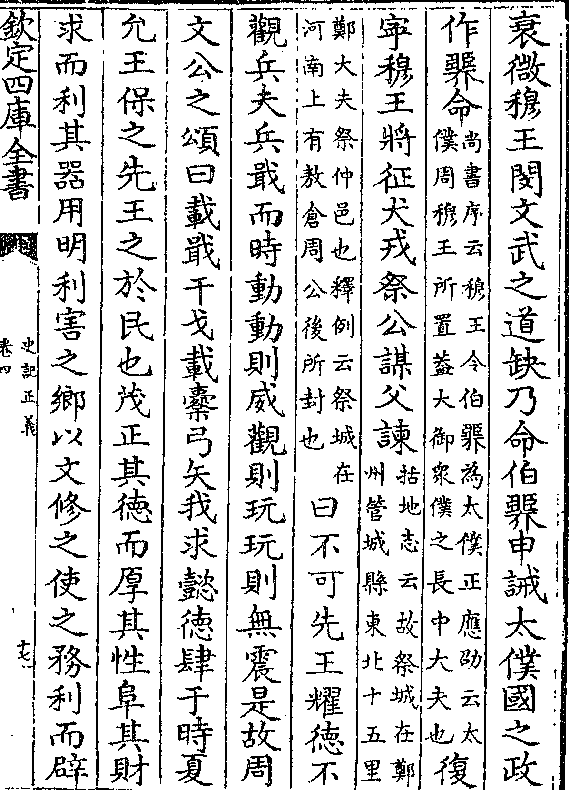 衰微穆王閔文武之道缺乃命伯臩申誡太僕國之政
作臩命尚書序云穆王令伯臩為太僕正應劭云太
僕周穆王所置葢大御衆僕之長中大夫也復
寕穆王將征犬戎祭公謀父諫括地志云故祭城在鄭
州管城縣東北十五里
鄭大夫祭仲邑也釋例云祭城在
河南上有敖倉周公後所封也曰不可先王耀德不
觀兵夫兵戢而時動動則威觀則玩玩則無震是故周
文公之頌曰載戢干戈載櫜弓矢我求懿德肆于時夏
允王保之先王之於民也茂正其德而厚其性阜其財
求而利其器用明利害之鄉以文修之使之務利而辟
欽定四庫全書
史記正義
卷四
十七